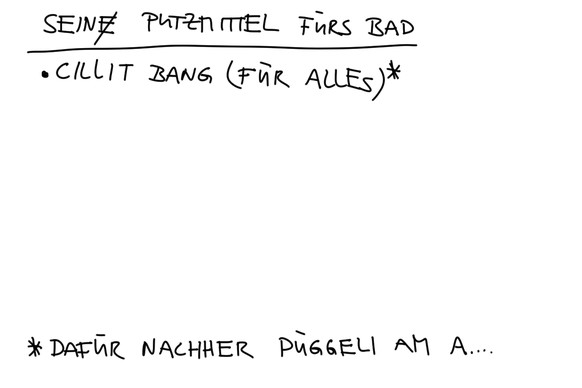 SEINE PUTZMITTEL FÜRS BAD
• CILLIT BANG (FÜR ALLES)*
* DAFÜR NACHHER PÜGGELI AM A....